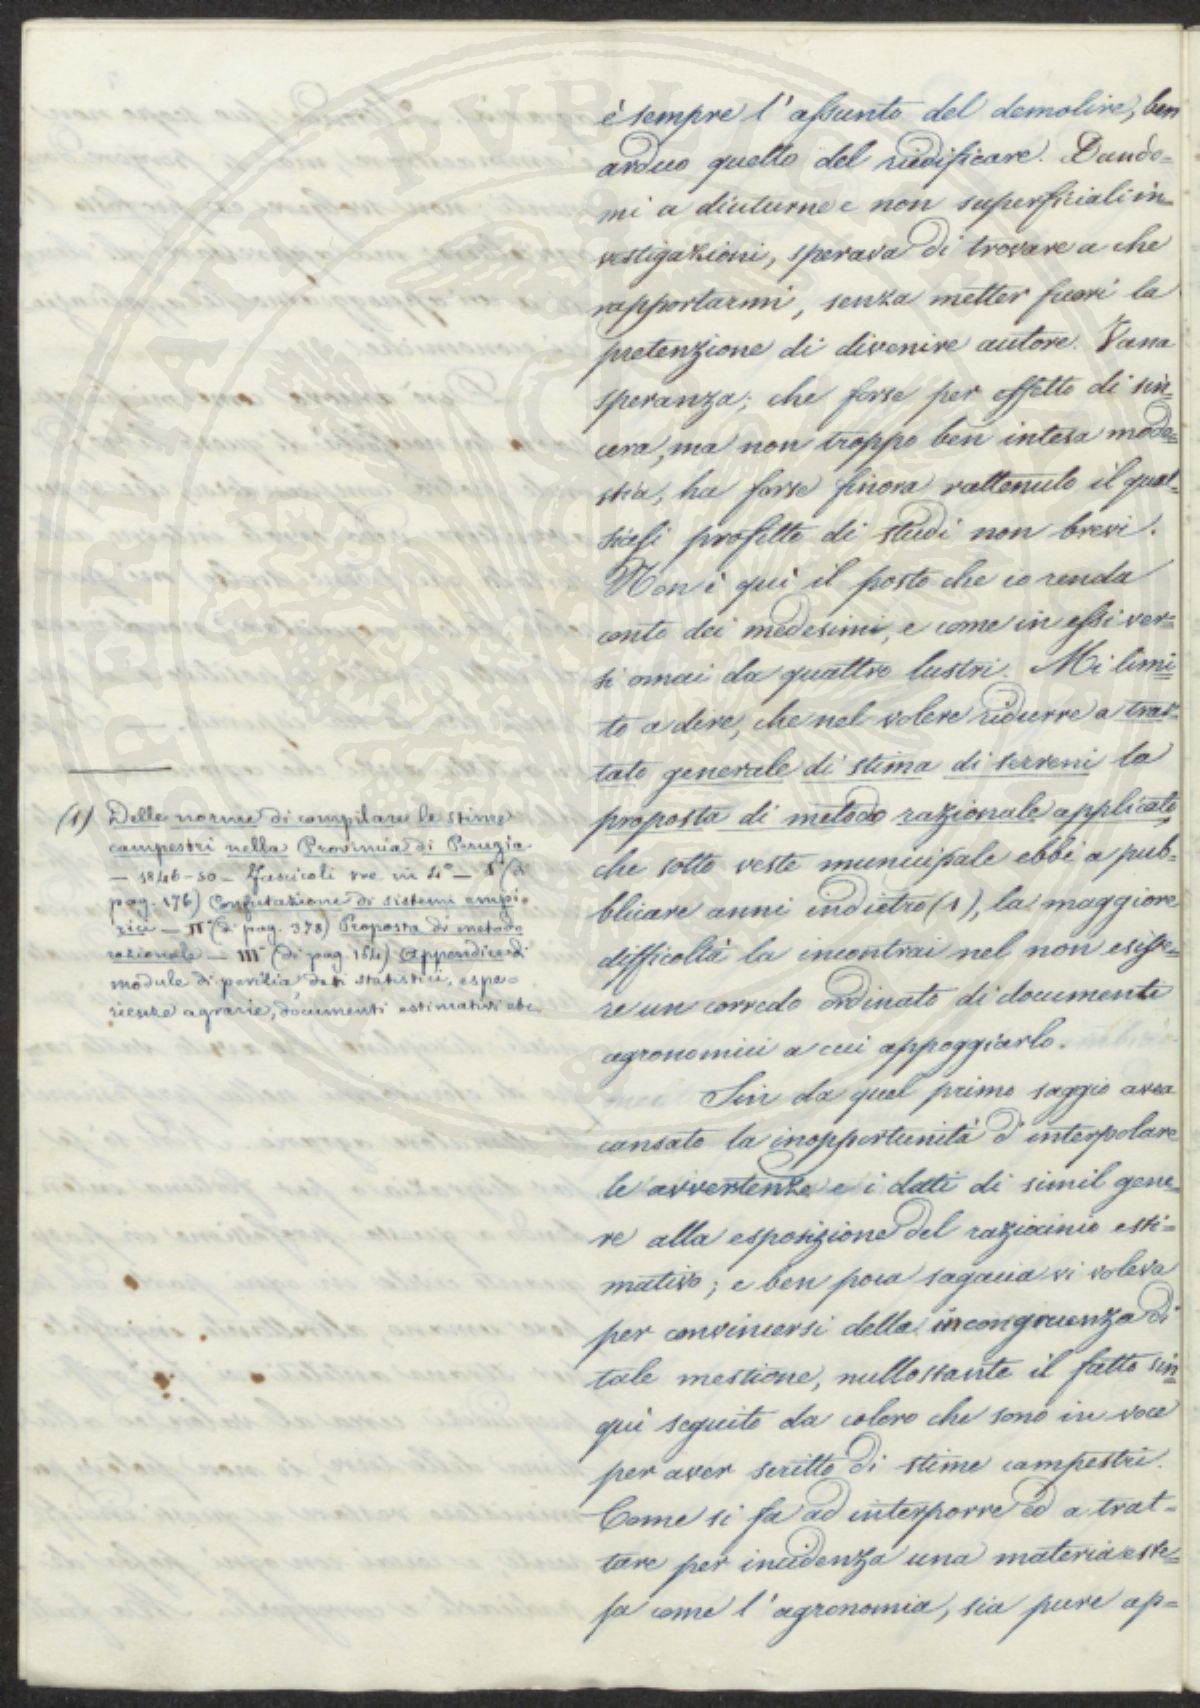 è sempre l'assunto del demolire, ben
arduo quello del riedificare. Dando-
mi a diuturne e non superficiali in-
vestigazioni, sperava di trovare a che
rapportarmi, senza metter fuori la
pretenzione di divenire autore. Vana
speranza; che forse per effetto di sin-
cera, ma non troppo ben intesa mode-
stia, ha forse finora rattenuto il qual-
siasi profitto di studi non brevi.
Non è qui il posto che io renda
conto dei medesimi, e come in essi ver-
si omai da quattro lustri. Mi limi-
to a dire, che nel volere ridurre a trat-
tato generale di stima di terreni la
proposta di metodo razionale applicato,
che sotto veste municipale ebbi a pub-
blicare anni indietro (1), la maggiore
difficoltà la incontrai nel non esiste-
re un corredo ordinato di documenti
agronomici a cui appoggiarlo.
Sin da quel primo saggio avea
cansato la inopportunità d'interpolare
le avvertenze e i dati di simil gene-
re alla esposizione del raziocinio esti-
mativo; e ben poca sagacia vi voleva
per convincersi della incongruenza di
tale mestione, nullostante il fatto sin
qui seguito da coloro che sono in voce
per aver scritto di stime campestri.
Come si fa ad interporre ed a trat-
tare per incidenza una materia este-
sa come l'agronomia, sia pure ap-
(1) Delle norme di compilare le stime
campestri nella Provincia di Perugia
— 1846-50 — Fascicoli tre in 4° — I° (di
pag. 176) Confutazione di sistemi empi-
rici — II° (di pag. 378) Proposta di metodo
razionale — III° (di pag. 154) Appendice di
module di perizia, dati statistici, espe-
rienze agrarie, documenti estimativi etc.
PERITATI PVBLICAE